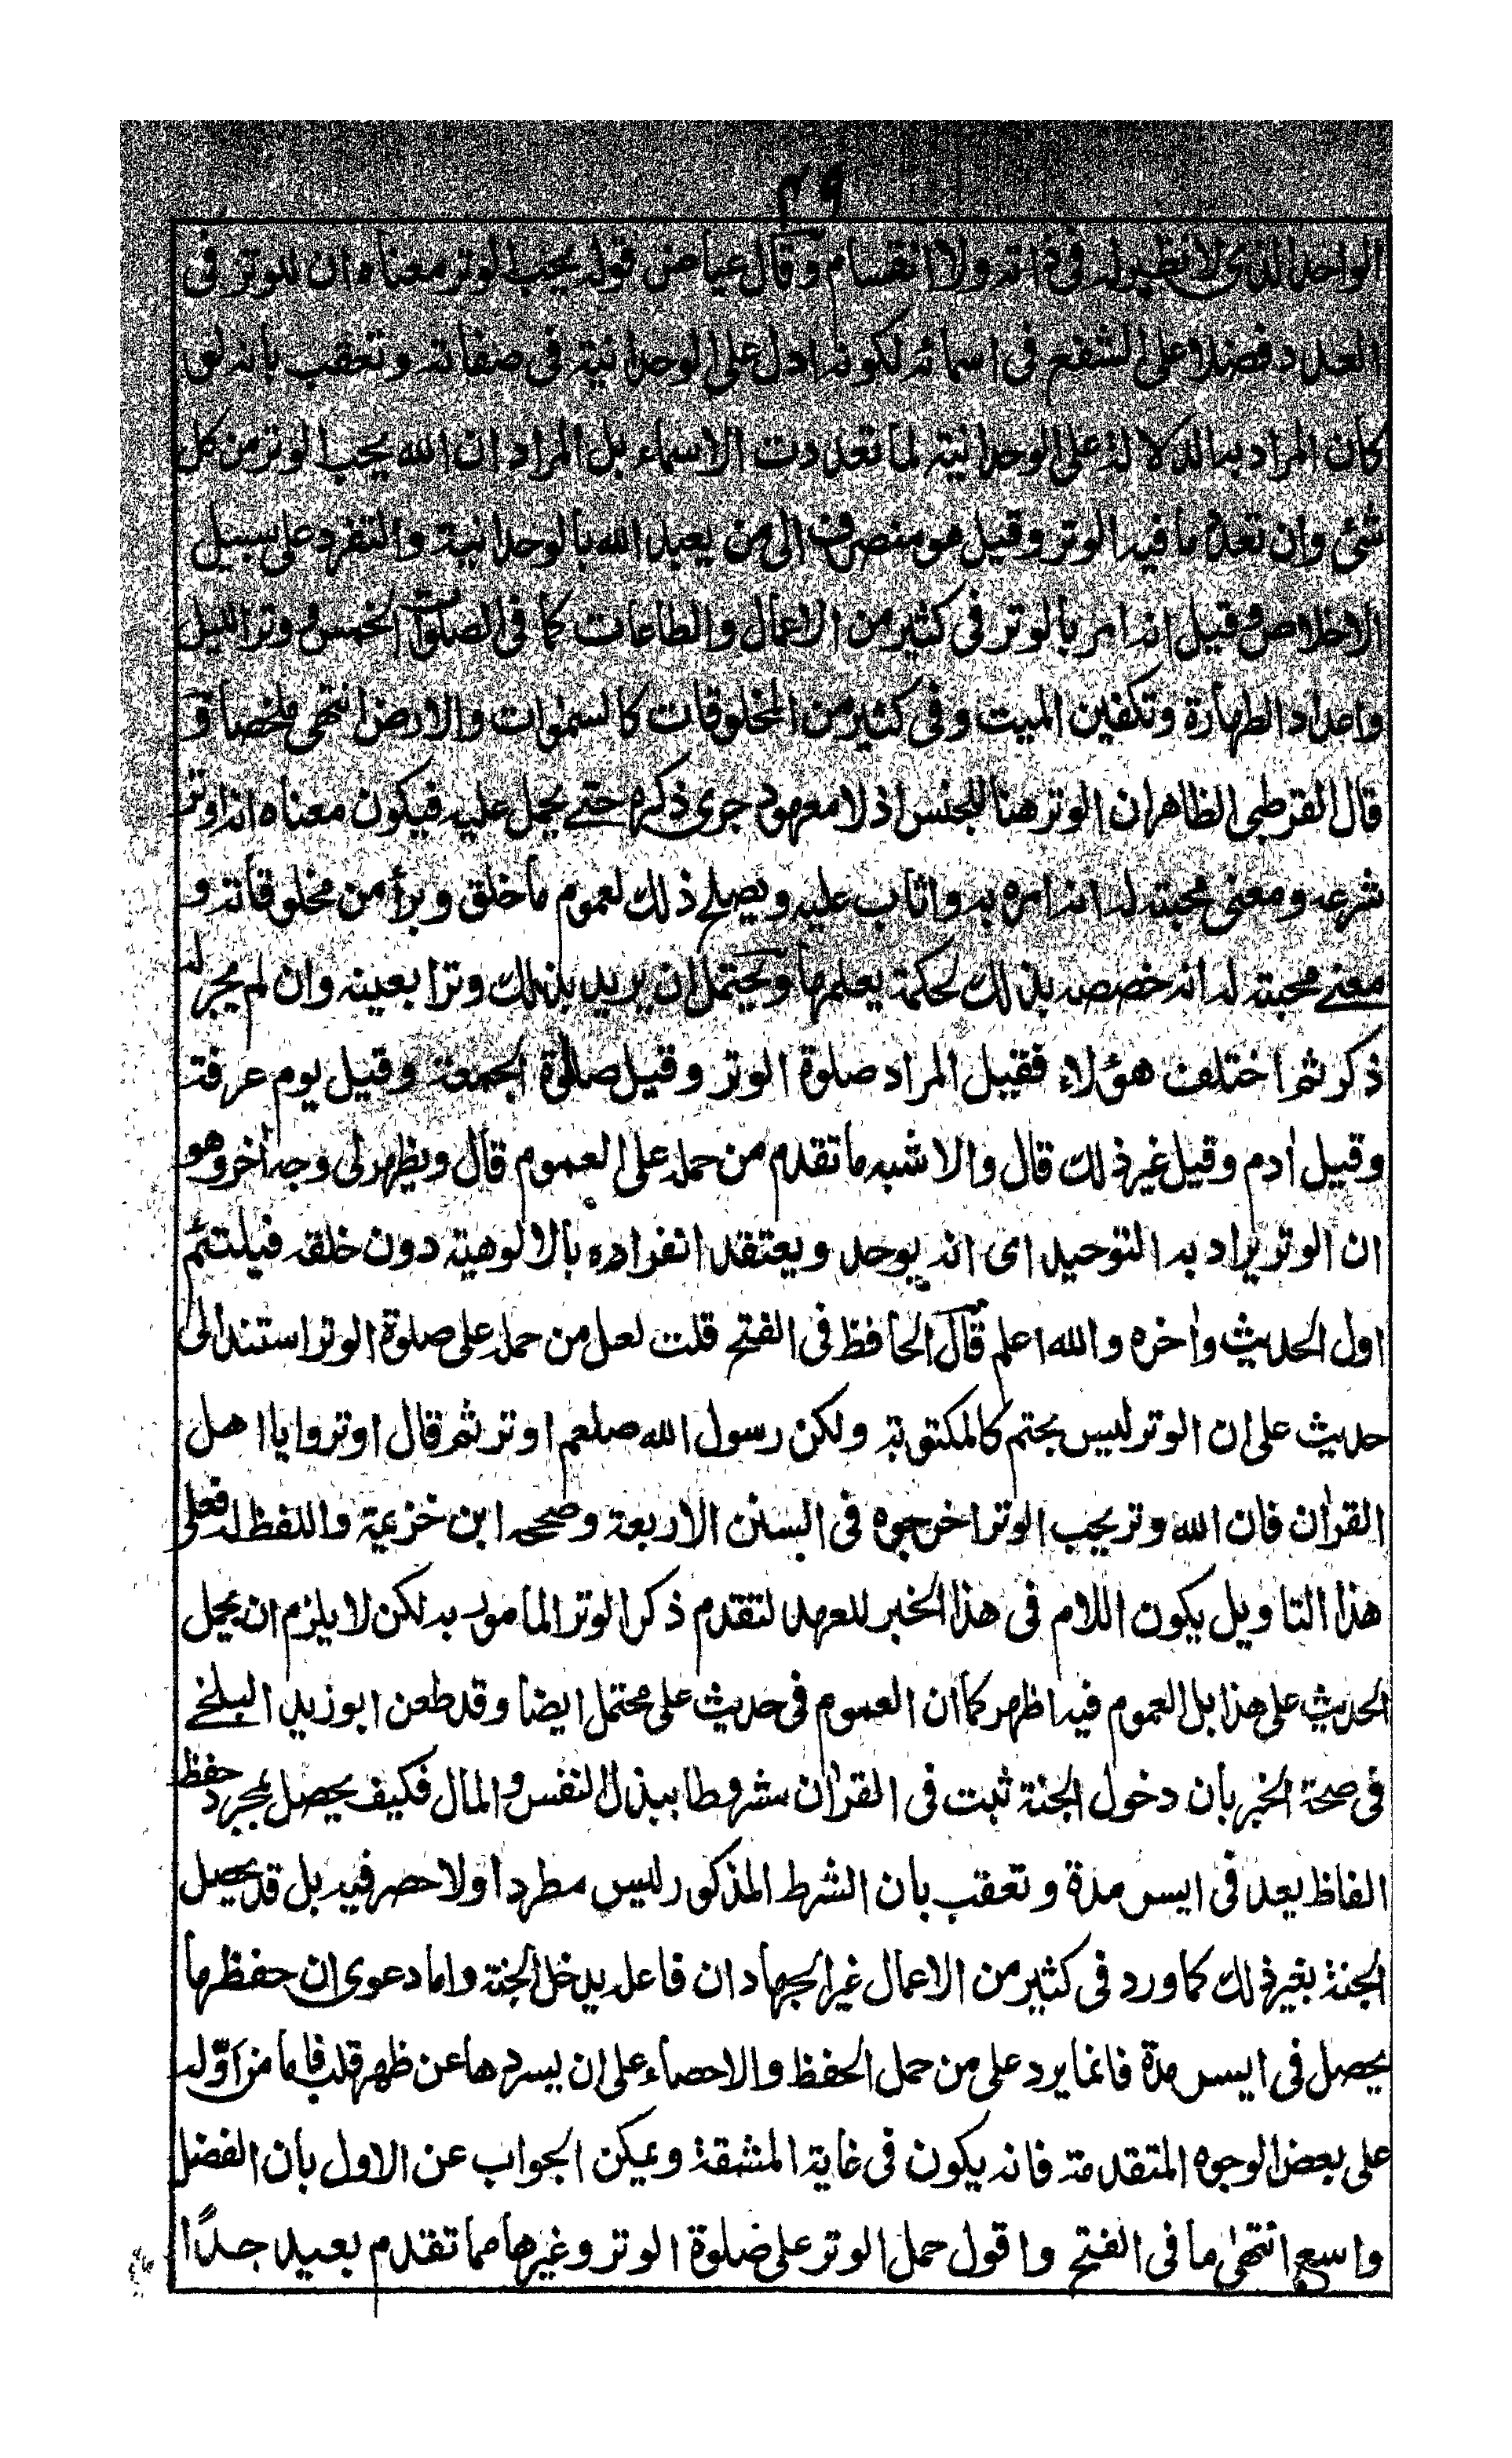 ٤٩
الواحد الذى لا نظير له فى ذاته ولا انقسام وقال عياض قوله يحب الوتر معناه ان للوتر فى
العدد فضلا على الشفع فى اسمائه لكونه ادل على الوحدانية فى صفاته وتعقب بانه لو
كان المراد به الدلالة على الوحدانية لما تعددت الاسماء بل المراد ان الله يحب الوتر من كل
شئ وان تعدد ما فيه الوتر وقيل هو منصرف الى من يعبد الله بالوحدانية والتفرد على سبيل
الاخلاص وقيل انه امر بالوتر فى كثير من الاعمال والطاعات كما فى الصلوات الخمس ووتر الليل
واعداد الطهارة وتكفين الميت وفى كثير من المخلوقات كالسموات والارض انتهى ملخصا و
قال القرطبى الظاهر ان الوتر هنا للجنس اذ لا معهود جرى ذكره حتے يحمل عليه فيكون معناه انه وتر
شرعه ومعنى محبته له انه امر به واثاب عليه ويصلح ذلك لعموم ما خلق وبرأ من مخلوقاته و
معنے محبته له انه خصصه بذلك لحكمة يعلمها ويحتمل ان يريد بذلك وترا بعينه وان لم يجر له
ذكر ثم اختلف هؤلاء فقيل المراد صلوة الوتر وقيل صلوة الجمعة وقيل يوم عرفة
وقيل اٰدم وقيل غير ذلك قال والاشبه ما تقدم من حمله على العموم قال ويظهر لى وجه اٰخر وهو
ان الوتر يراد به التوحيد اى انه يوحد ويعتقد انفراده بالالوهية دون خلقه فيلتئم
اول الحديث واٰخره والله اعلم قال الحافظ فى الفتح قلت لعل من حمله على صلوة الوتر استند الى
حديث على ان الوتر ليس بحتم كالمكتوبة ولكن رسول الله صلعم اوتر ثم قال اوتروا يا اهل
القراٰن فان الله وتر يحب الوتر اخرجوه فى السنن الاربعة وصححه ابن خزيمة واللفظ له فعلى
هذا التاويل يكون اللام فى هذا الخبر للعهد لتقدم ذكر الوتر المامور به لكن لا يلزم ان يحمل
الحديث على هذا بل العموم فيه اظهر كما ان العموم فى حديث على محتمل ايضا وقد طعن ابو زيد البلخے
فى صحة الخبر بان دخول الجنة ثبت فى القراٰن مشروطا ببذل النفس والمال فكيف يحصل بمجرد حفظ
الفاظ يعد فى ايسر مدة وتعقب بان الشرط المذكور ليس مطردا ولا حصر فيه بل قد يحصل
الجنة بغير ذلك كما ورد فى كثير من الاعمال غير الجهاد ان فاعله يدخل الجنة واما دعوى ان حفظها
يحصل فى ايسر مدة فانما يرد على من حمل الحفظ والاحصاء على ان يسردها عن ظهر قلب فاما من اوّله
على بعض الوجوه المتقدمة فانه يكون فى غاية المشقة ويمكن الجواب عن الاول بان الفضل
واسع انتهىٰ ما فى الفتح واقول حمل الوتر على صلوة الوتر وغيرها مما تقدم بعيد جدًا